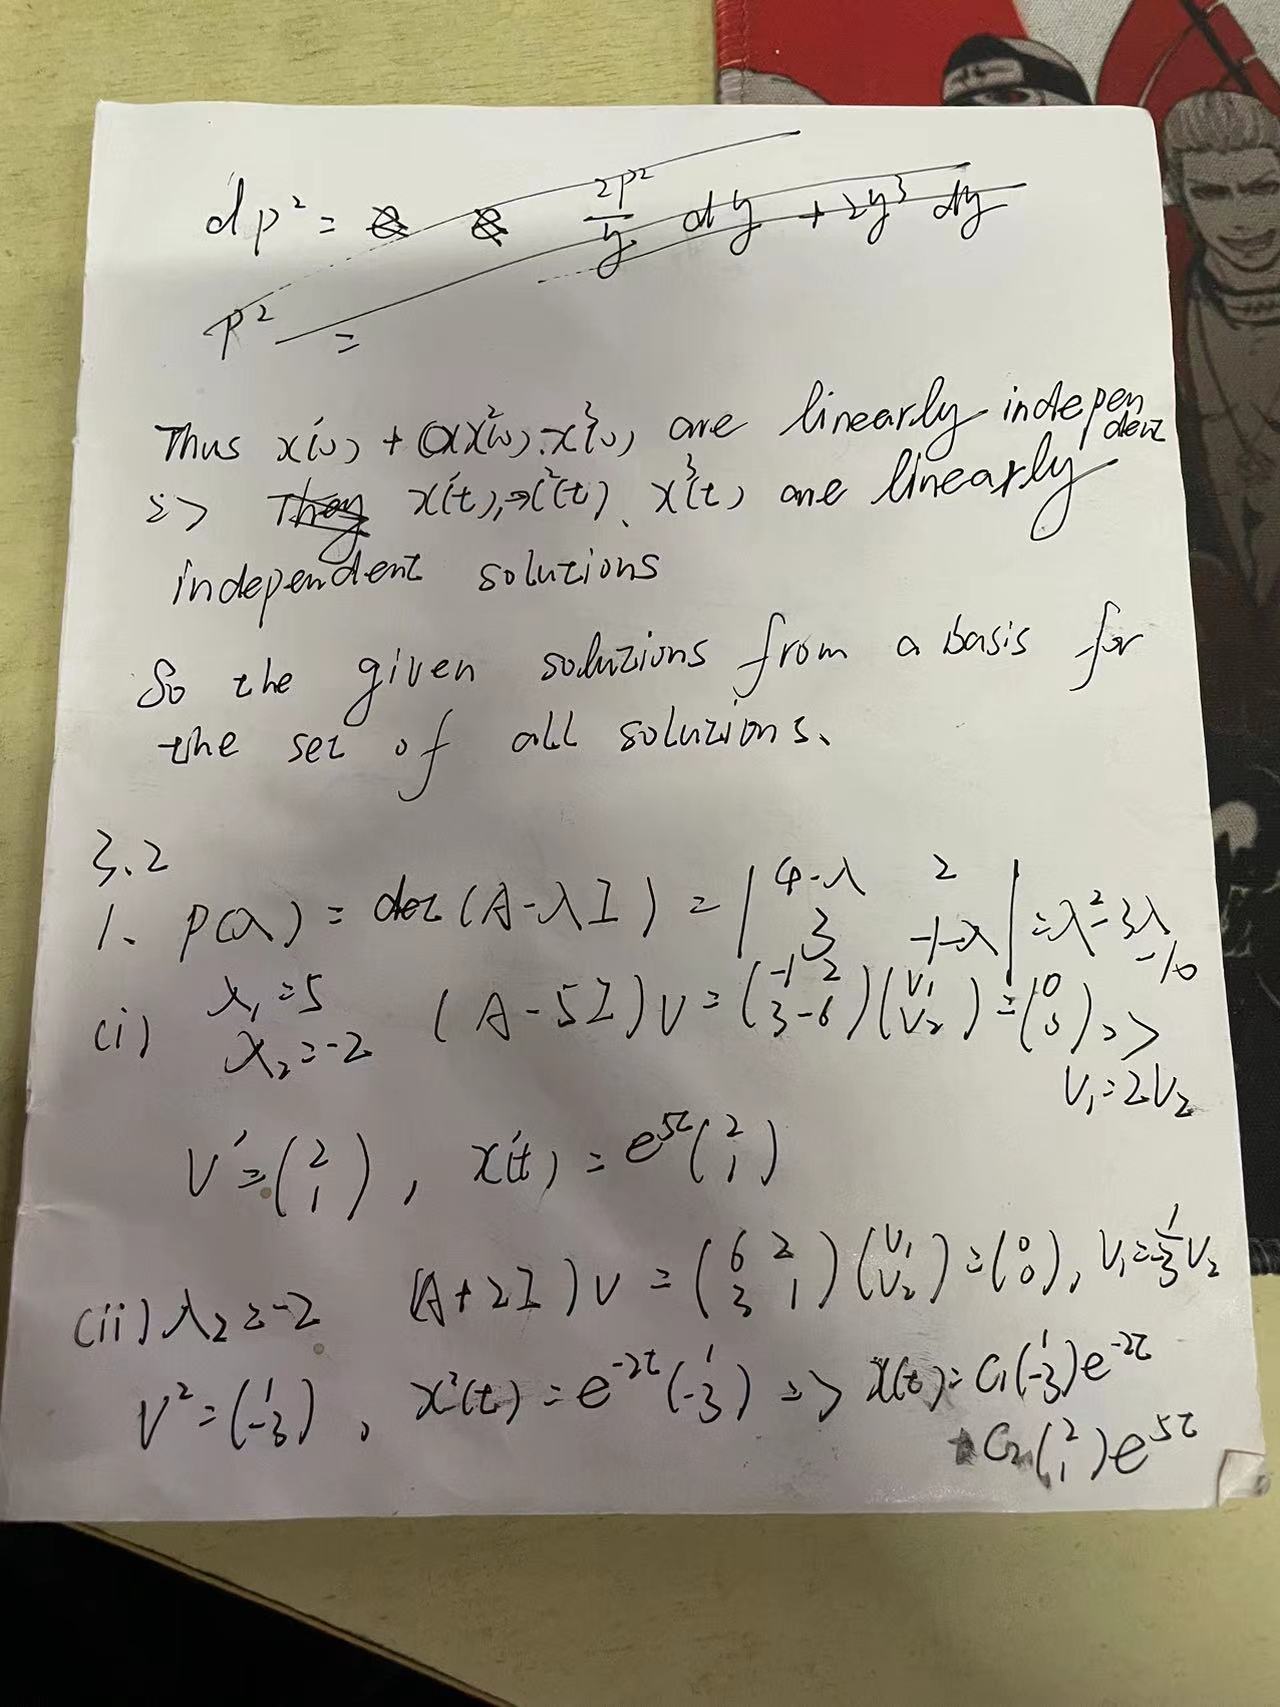 dp² = 2p²/y dy + 2y³ dy
p² =
Thus x¹(0) + x²(0), x³(0) are linearly indepen
dent
=> x¹(t), x²(t), x³(t) are linearly
independent solutions
So the given solutions from a basis for
the set of all solutions.
3.2
1. P(λ) = det(A-λI) = |4-λ 2; 3 -1-λ| = λ²-3λ
-10
(i) λ₁=5 (A-5I)v = (-1 2; 3 -6)(v₁; v₂) = (0; 0) =>
λ₂=-2
v₁=2v₂
v¹=(2; 1), x¹(t) = e^5t (2; 1)
(ii) λ₂=-2 (A+2I)v = (6 2; 3 1)(v₁; v₂) = (0; 0), v₁=-1/3 v₂
v²=(1; -3), x²(t) = e^-2t (1; -3) => x(t)=C₁(1; -3)e^-2t
+C₂(2; 1)e^5t